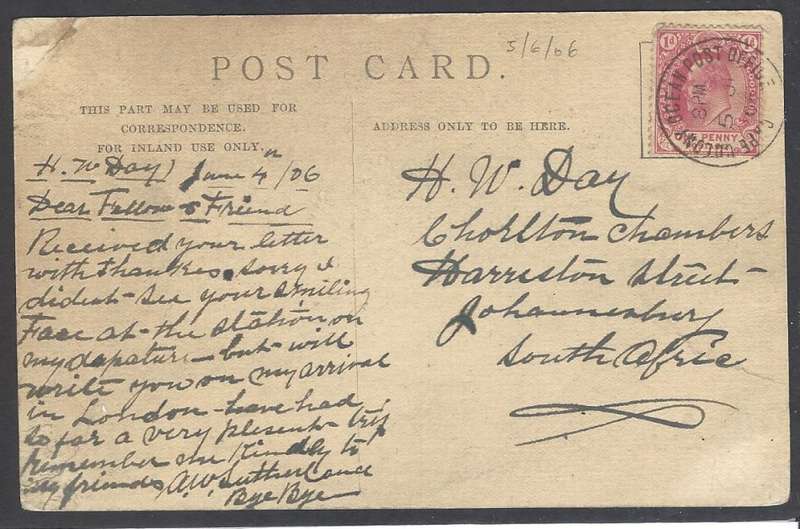 5/6/06
POST CARD.
THIS PART MAY BE USED FOR
CORRESPONDENCE.
FOR INLAND USE ONLY.
H. W Day) June 4th/06
Dear Fellow & Friend
Received your letter
with thankes. sorry I
dident see your smiling
Face at the station on
my dapature — but will
write you on my arrival
in London - have had
so far a very plesent trip
remember me Kindly to
my friends A.W. Sutherland
Bye Bye
ADDRESS ONLY TO BE HERE.
H. W. Day
Chorlton Chambers
Harriston street
Johannesburg
South Afric
1d
PENNY
OCEAN POST OFFICE
CAPE COLONY
8 PM
5